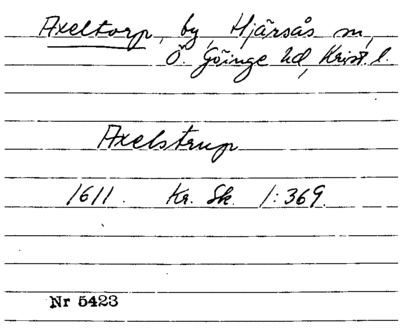 Axeltorp, by, Hjärsås sn,
Ö. Göinge hd, Krist. l.
Axelstrup
1611. Kr. Sk. 1:369.
Nr 5423